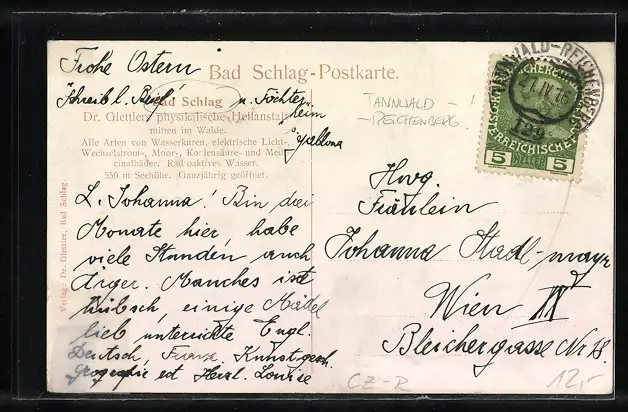 Frohe Ostern
Bad Schlag-Postkarte.
Schreib l. Brief! u. Töchter„
Bad Schlag
heim
Dr. Glettler, physikalische Heilanstalt
mitten im Walde.
Alle Arten von Wasserkuren, elektrische Licht-,
Wechselstrom-, Moor-, Kohlensäure- und Medi-
cinalbäder. Radioaktives Wasser.
550 m Seehöhe. Ganzjährig geöffnet.
L. Johanna! Bin drei
Monate hier, habe
viele Stunden auch
Ärger. Manches ist
hübsch, einige Mädel
lieb unterrichte Engl.
Deutsch, Franz. Kunstgesch.
Geografie etc. Herzl. Louise
Verlag: Dr. Glettler, Bad Schlag.
TANNWALD - !
- REICHENBERG
TANNWALD-REICHENBERG
IV
129
5 HELLER 5
Fräulein
Johanna Stadlmayr
Wien IV
Bleichergasse Nr 18.
CZ-R
12,-